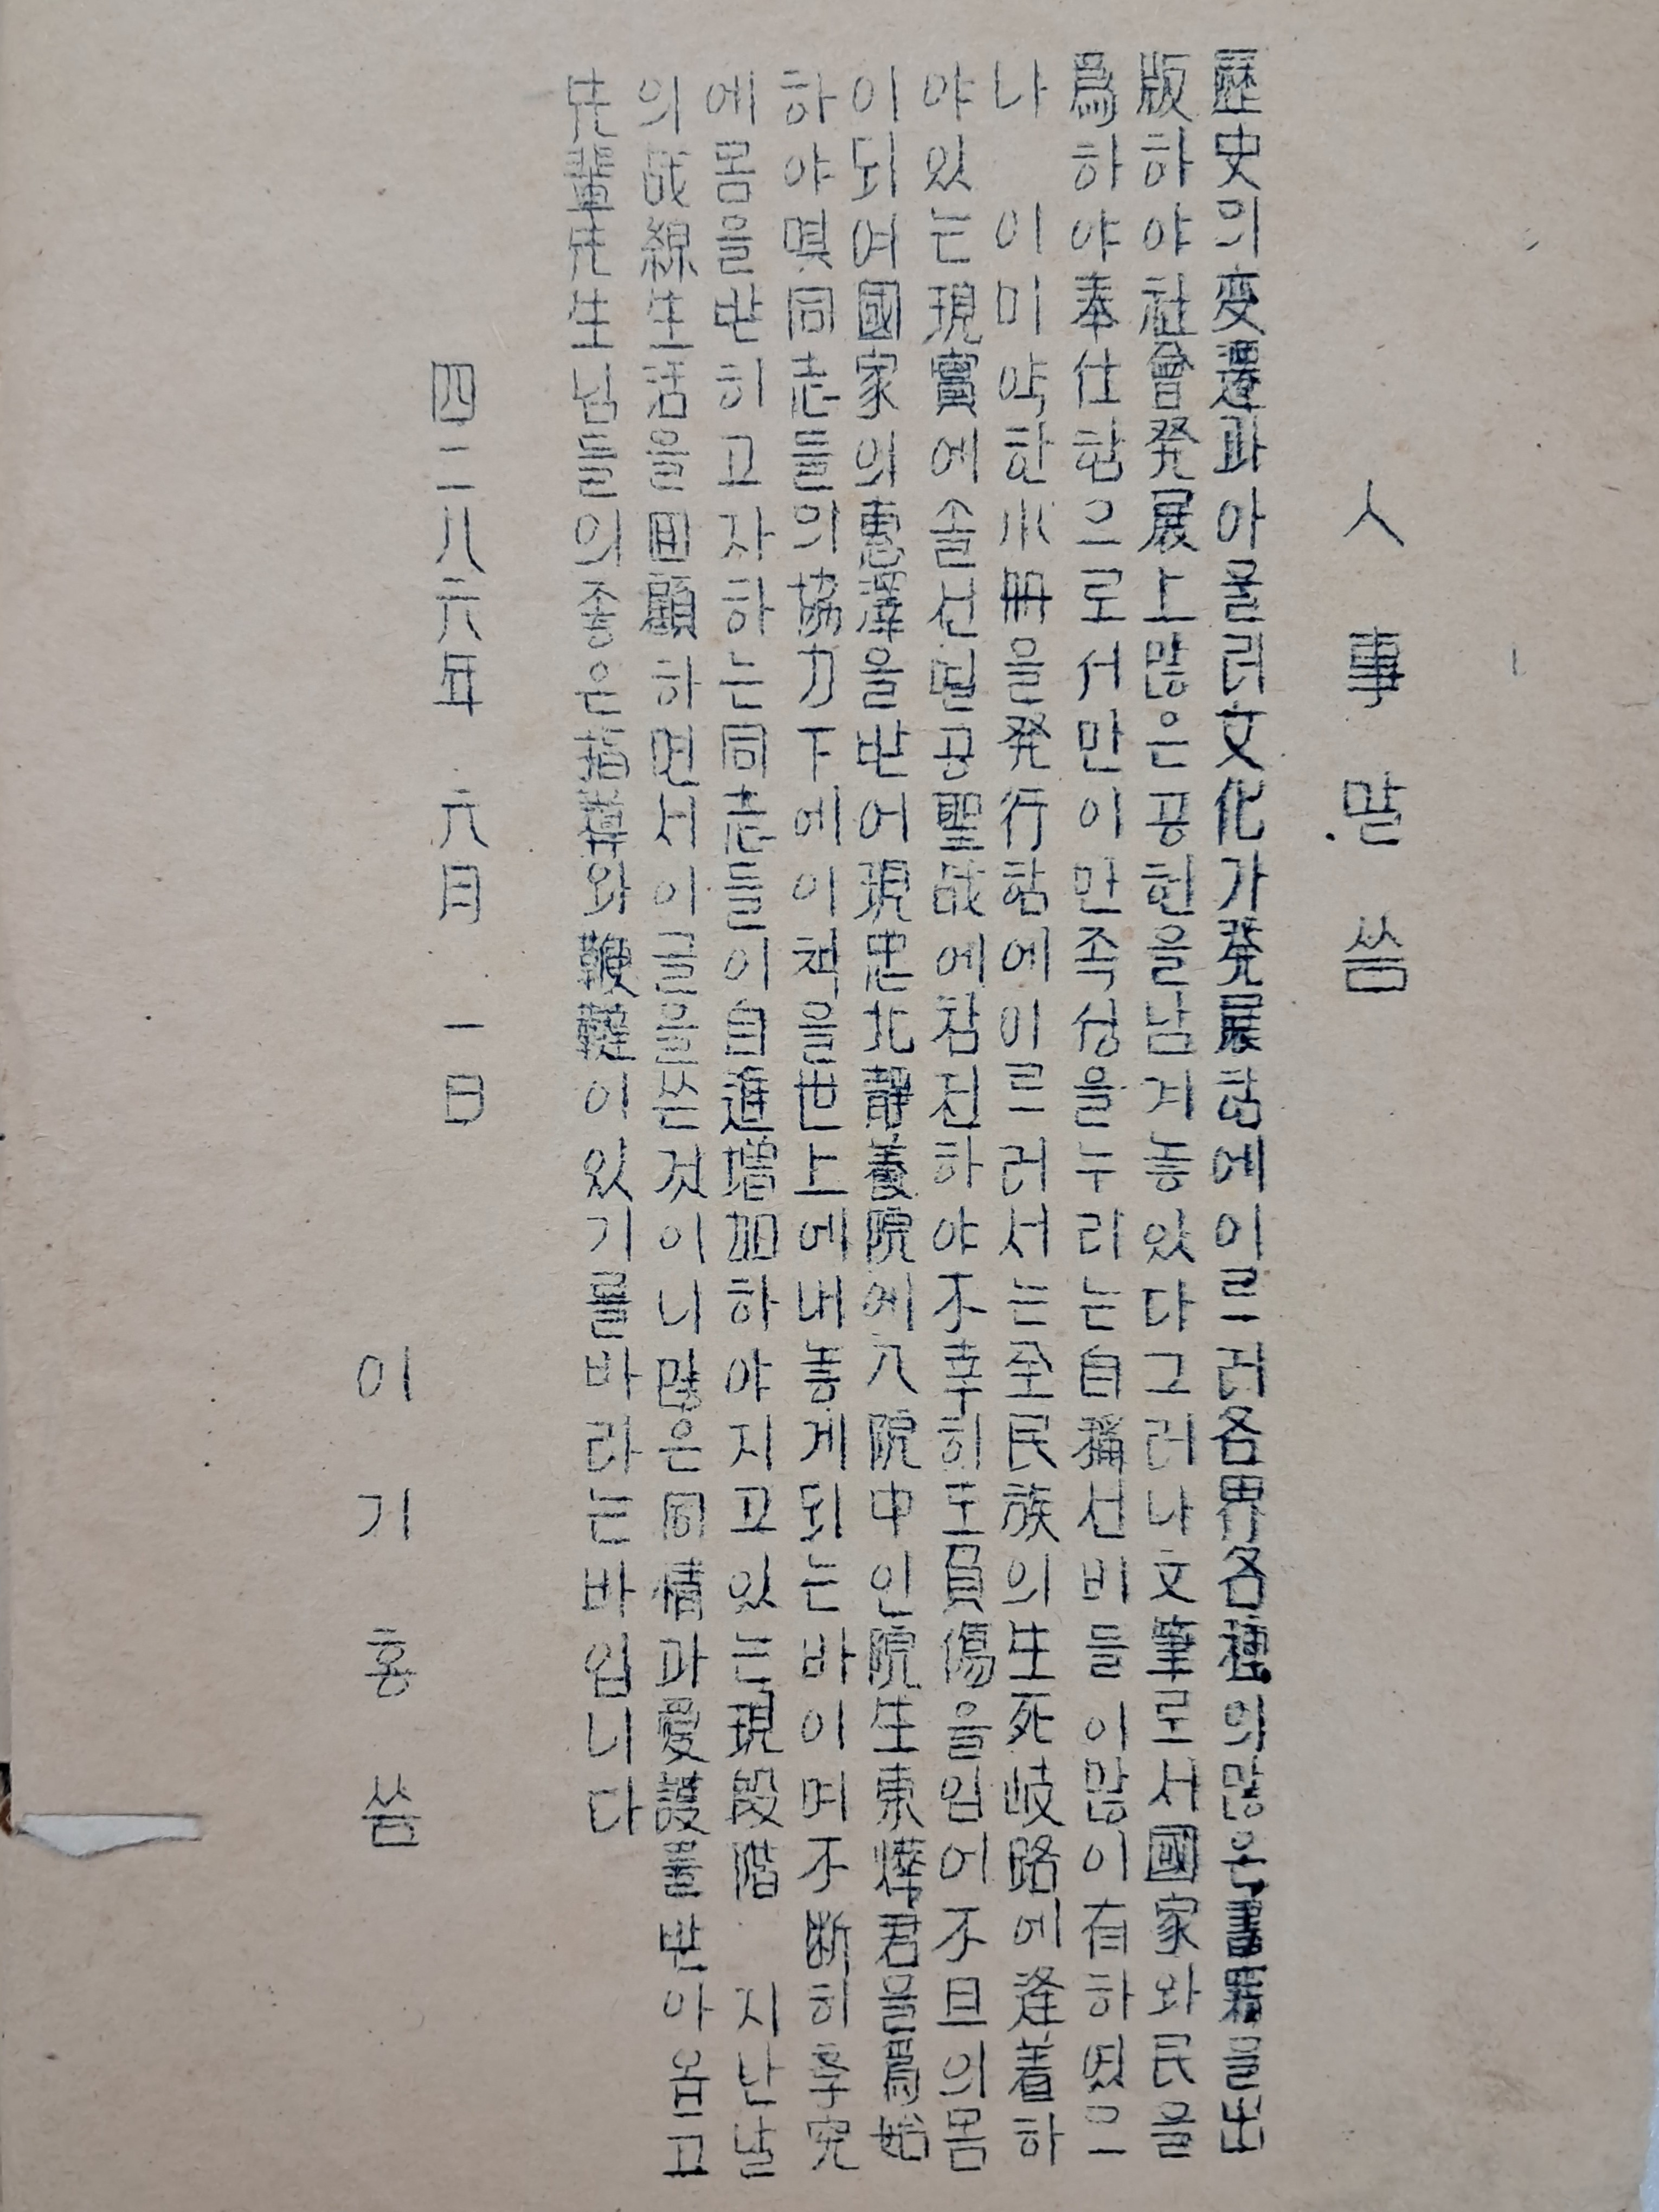 人事말씀
歷史의変遷과아울러文化가発展함에이르러各界各種의많은書籍을出
版하야社會発展上많은공헌을남겨놓았다그러나文筆로서國家와民을
爲하야奉仕함으로서만이만족성을누리는自稱선비들이많이有하였으
나 이미약한小冊을発行함에이르러서는全民族의生死岐路에逢着하
야있는現實에솔선된공聖战에참전하야不幸히도負傷을입어不具의몸
이되여國家의惠澤을받어現忠北静養院에入院中인院生東燁君을爲始
하야唄同志들의協力下에이책을世上에내놓게되는바이며不断히学究
에몸을받히고자하는同志들이自進增加하야지고있는現段階 지난날
의战線生活을回顧하면서이글을쓴것이니많은同情과愛護를받아옵고
先輩先生님들의좋은指導와鞭韃이있기를바라는바입니다
四二八六年 六月 一日
이기홍씀